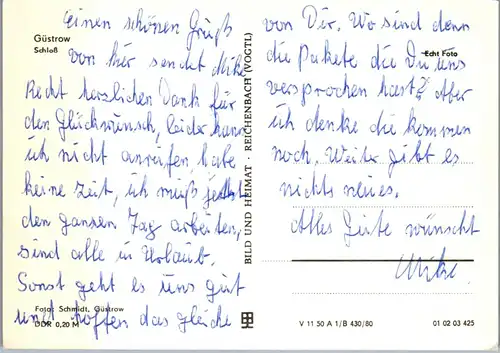 Güstrow
Schloß
einen schönen Gruß
von hier sendet Mike
Recht herzlichen Dank für
den Glückwunsch, leider kann
ich nicht anrufen, habe
keine Zeit, ich muß jetzt
den ganzen Tag arbeiten,
sind alle in Urlaub.
Sonst geht es uns gut
und hoffen das gleiche
Foto: Schmidt, Güstrow
DDR 0,20 M
BILD UND HEIMAT · REICHENBACH (VOGTL)
von Dir. Wo sind denn
Echt Foto
die Pakete die Du uns
versprochen hast? Aber
ich denke die kommen
noch. Weiter gibt es
nichts neues.
Alles Gute wünscht
Mike
V 11 50 A 1/B 430/80
01 02 03 425